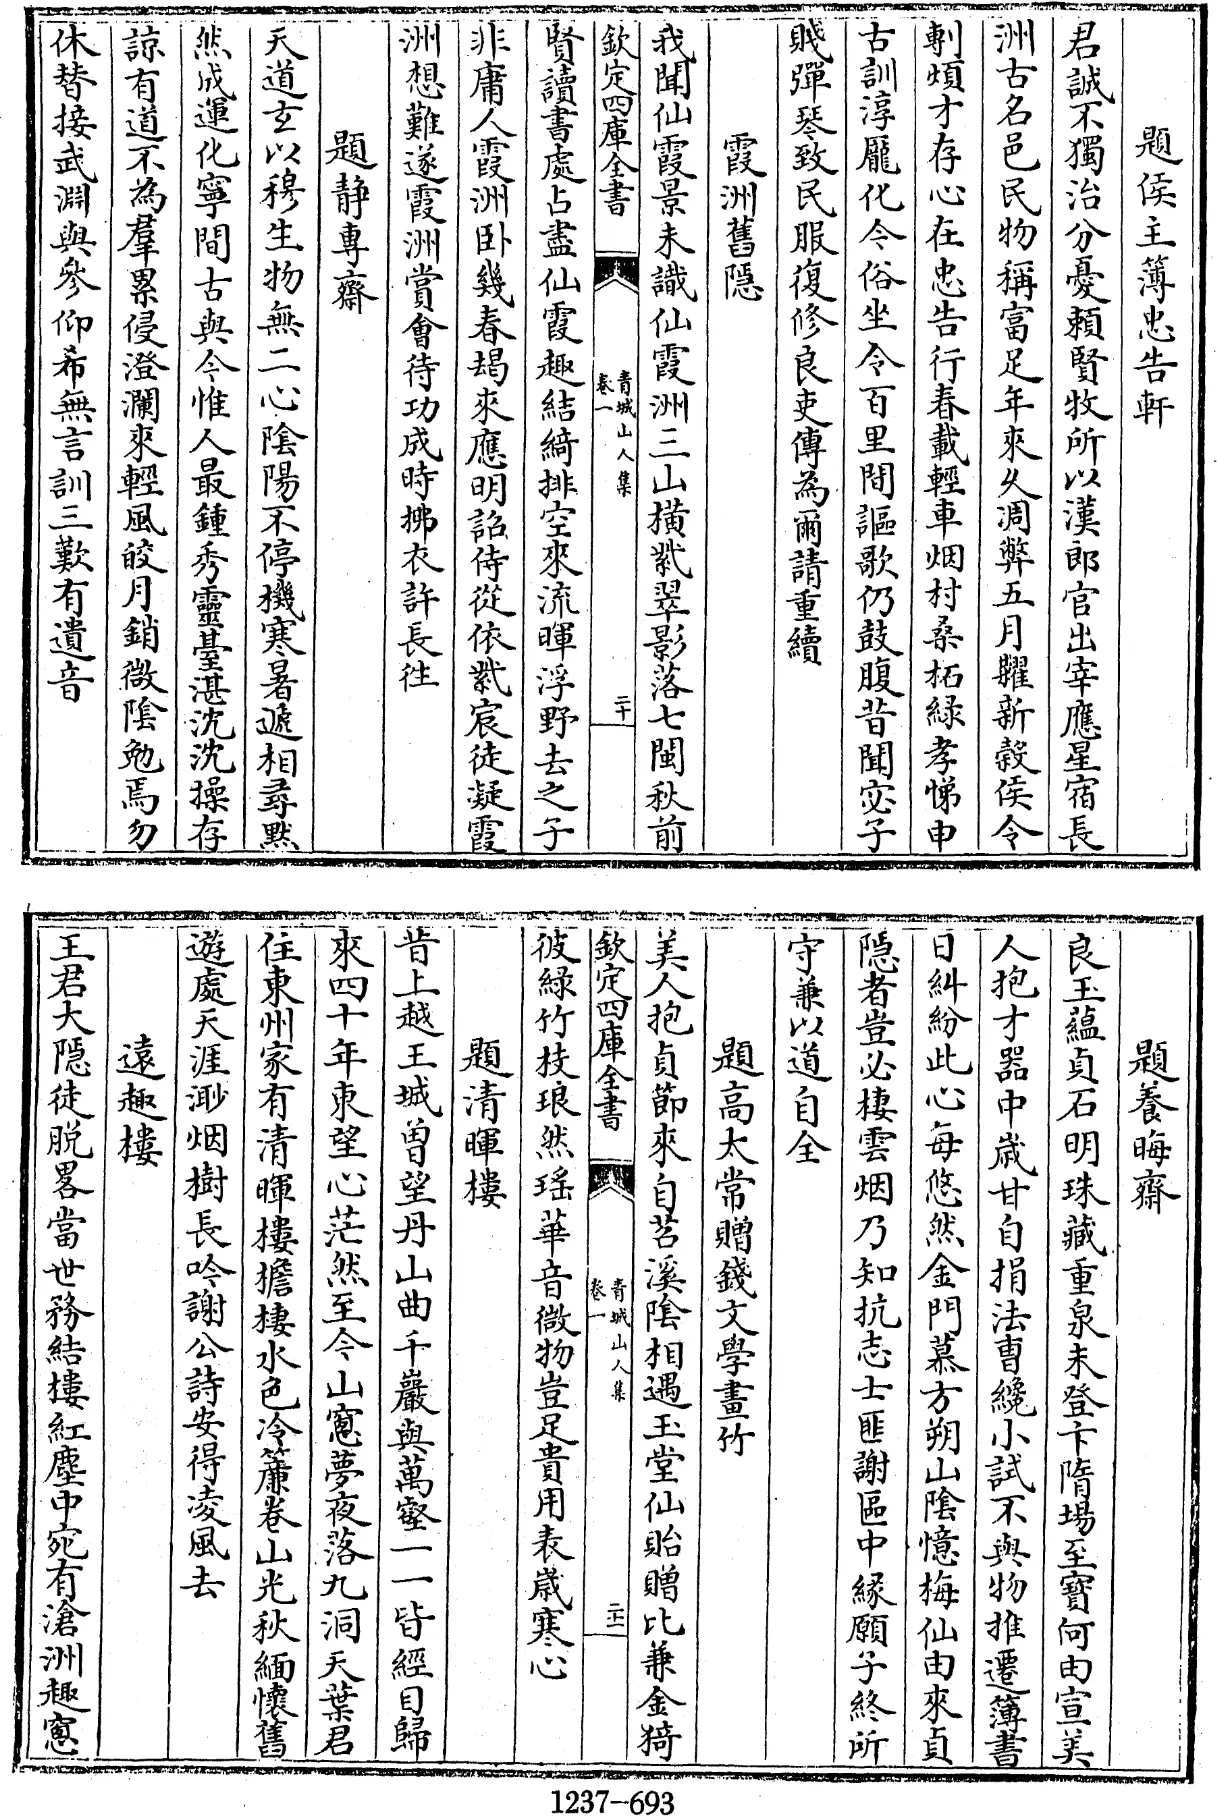 題侯主簿忠告軒
君誠不獨治分憂頼賢牧所以漢郎官出宰應星宿長
洲古名邑民物稱富足年來久凋弊五月糶新榖侯令
剸煩才存心在忠告行春載輕車烟村桑柘緑孝悌申
古訓淳龎化令俗坐令百里間謳歌仍鼓腹昔聞宓子
賤彈琴致民服復修良吏傳為爾請重續
霞洲舊隱
我聞仙霞景未識仙霞洲三山橫紫翠影落七閩秋前
欽定四庫全書
青城山人集
卷一
二十
賢讀書處占盡仙霞趣結綺排空來流暉浮野去之子
非庸人霞洲卧幾春朅來應明詔侍從依紫宸徒凝霞
洲想難遂霞洲賞會待功成時拂衣許長往
題静專齋
天道玄以穆生物無二心陰陽不停機寒暑遞相尋黙
然成運化寧間古與今惟人最鍾秀靈臺湛沈沈操存
諒有道不為羣累侵澄瀾來輕風皎月銷微陰勉焉勿
休替接武淵與參仰希無言訓三歎有遺音
題養晦齋
良玉蘊貞石明珠藏重泉未登卞隋場至寳何由宣美
人抱才器中歳甘自捐法曹纔小試不與物推遷簿書
日糾紛此心每悠然金門慕方朔山陰憶梅仙由來貞
隱者豈必棲雲烟乃知抗志士匪謝區中縁願子終所
守兼以道自全
題高太常贈錢文學畫竹
美人抱貞節來自苕溪陰相遇玉堂仙貽贈比兼金猗
欽定四庫全書
青城山人集
卷一
二十一
彼緑竹枝琅然瑶華音微物豈足貴用表歳寒心
題清暉樓
昔上越王城曽望丹山曲千巖與萬壑一一皆經目歸
來四十年東望心茫然至今山窻夢夜落九洞天葉君
住東州家有清暉樓擔棲水色冷簾卷山光秋緬懷舊
遊處天涯渺烟樹長吟謝公詩安得凌風去
遠趣樓
王君大隱徒脱畧當世務結樓紅塵中宛有滄洲趣窻
1237-693